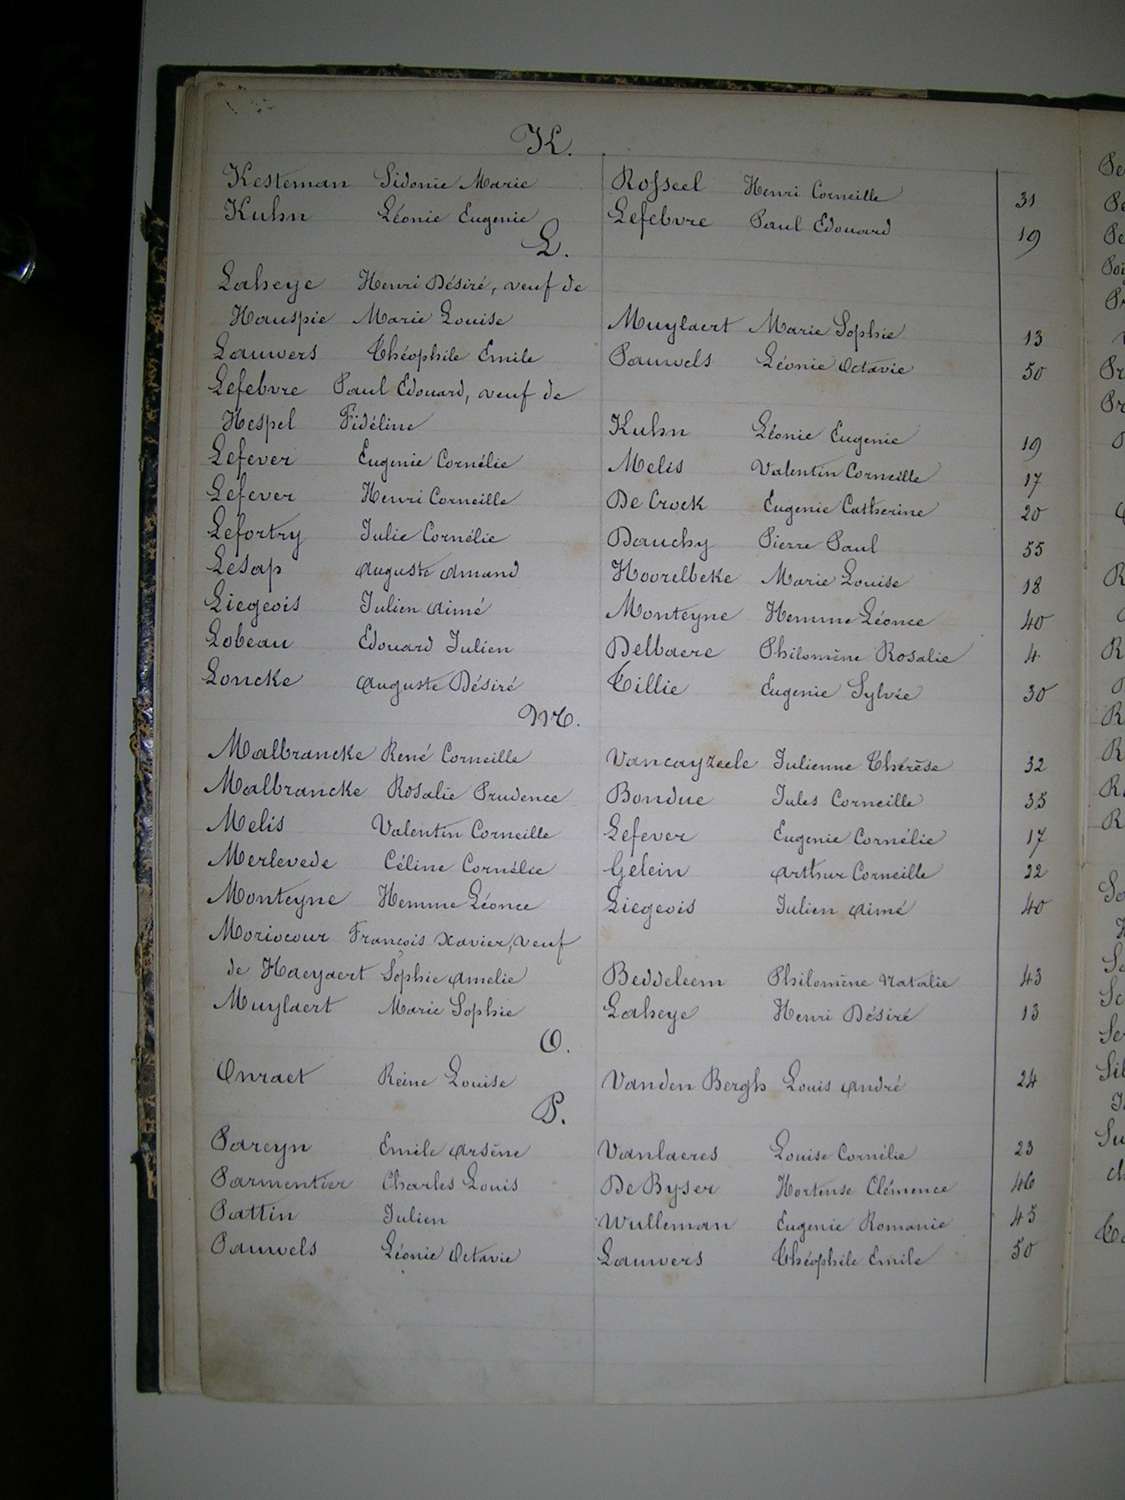 K.
Kesteman Sidonie Marie Rosseel Henri Corneille 31
Kuhn Léonie Eugenie Lefebvre Paul Edouard 19
L.
Laheye Henri Désiré, veuf de
Hauspie Marie Louise Muylaert Marie Sophie 13
Lauwers Théophile Emile Pauwels Léonie Octavie 50
Lefebvre Paul Edouard, veuf de
Hespel Fidéline Kuhn Léonie Eugenie 19
Lefever Eugenie Cornélie Melis Valentin Corneille 17
Lefever Henri Corneille De Crock Eugenie Catherine 20
Lefortry Julie Cornélie Dauchy Pierre Paul 55
Lesap Auguste Amand Hoorelbeke Marie Louise 18
Liegeois Julien Aimé Monteyne Hemme Léonce 40
Lobeau Edouard Julien Delbaere Philomène Rosalie 4
Loncke Auguste Désiré Tillie Eugenie Sylvie 30
M.
Malbrancke René Corneille Vancayzeele Julienne Thérèse 32
Malbrancke Rosalie Prudence Bondue Jules Corneille 35
Melis Valentin Corneille Lefever Eugenie Cornélie 17
Merlevede Céline Cornélie Gelein Arthur Corneille 22
Monteyne Hemme Léonce Liegeois Julien Aimé 40
Moriocour François Xavier, veuf
de Haeyaert Sophie Amelie Beddeleem Philomène Natalie 43
Muylaert Marie Sophie Laheye Henri Désiré 13
O.
Onraet Reine Louise Vanden Bergh Louis André 24
P.
Pareyn Emile Arsène Vanlaeres Louise Cornélie 23
Parmentier Charles Louis De Byser Hortense Clémence 46
Pattin Julien Wulleman Eugenie Romanie 45
Pauwels Léonie Octavie Lauwers Théophile Emile 50